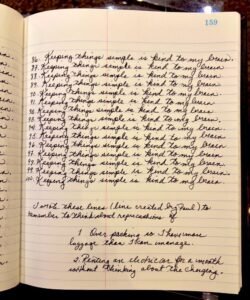 159
86. Keeping things simple is kind to my brain.
87. Keeping things simple is kind to my brain.
88. Keeping things simple is kind to my brain.
89. Keeping things simple is kind to my brain.
90. Keeping things simple is kind to my brain.
91. Keeping things simple is kind to my brain
92. Keeping things simple is kind to my brain
93. Keeping things simple is kind to my brain.
94. Keeping things simple is kind to my brain.
95. Keeping things simple is kind to my brain.
96. Keeping things simple is kind to my brain.
97. Keeping things simple is kind to my brain.
98. Keeping things simple is kind to my brain.
99. Keeping things simple is kind to my brain
100. Keeping things simple is kind to my brain
I wrote these lines (line created by Paul) to
remember to think about repercussions of
1. Over packing so I have more
luggage than I can manage.
2. Renting an electric car for a month
without thinking about the charging.